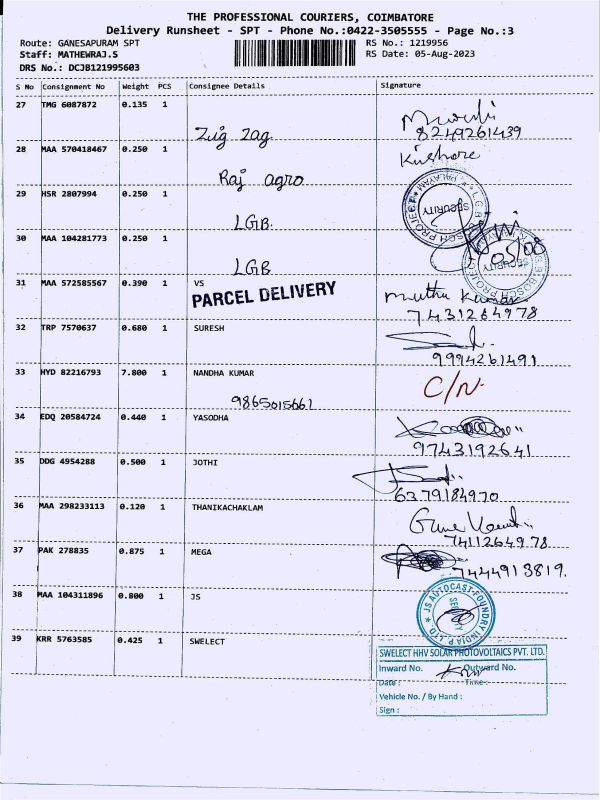 THE PROFESSIONAL COURIERS, COIMBATORE
Delivery Runsheet - SPT - Phone No.:0422-3505555 - Page No.:3
Route: GANESAPURAM SPT RS No.: 1219956
Staff: MATHEWRAJ.S RS Date: 05-Aug-2023
DRS No.: DCJB121995603
S No Consignment No Weight PCS Consignee Details Signature
27 TMG 6087872 0.135 1
Zug zag 8249261439
28 MAA 570418467 0.250 1 Kishore
Raj agro
29 HSR 2807994 0.250 1
LGB. SECURITY
30 MAA 104281773 0.250 1
LGB 05/08
31 MAA 572585567 0.390 1 VS
PARCEL DELIVERY Muthu Kumar
7431264978
32 TRP 7570637 0.680 1 SURESH
9994261491
33 HYD 82216793 7.800 1 NANDHA KUMAR C/N
9865015661
34 EDQ 20584724 0.440 1 YASODHA
9743192641
35 DDG 4954288 0.500 1 JOTHI
6379184970
36 MAA 298233113 0.120 1 THANIKACHAKLAM
7411264978
37 PAK 278835 0.875 1 MEGA
7444913819.
38 MAA 104311896 0.800 1 JS
JS AUTOCAST FOUNDRY INDIA P. LTD
39 KRR 5763585 0.425 1 SWELECT
SWELECT HHV SOLAR PHOTOVOLTAICS PVT. LTD.
Inward No. Outward No.
Date : Time :
Vehicle No. / By Hand :
Sign :